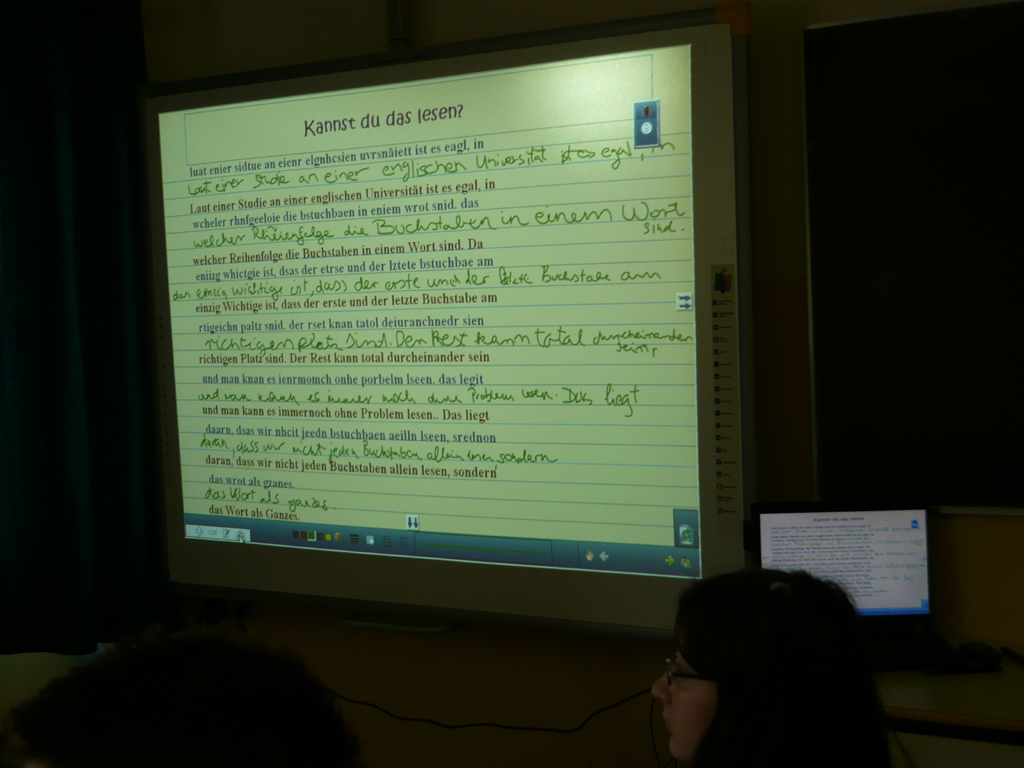 Kannst du das lesen?
luat enier sidtue an eienr elgnhcsien uvrsnäiett ist es eagl, in
Laut einer Studie an einer englischen Universität ist es egal, in
Laut einer Studie an einer englischen Universität ist es egal, in
wcheler rhnfgeeloie die bstuchbaen in eniem wrot snid. das
welcher Rheienfolge die Buchstaben in einem Wort
sind.
welcher Reihenfolge die Buchstaben in einem Wort sind. Da
eniizg whictgie ist, dsas der etrse und der lztete bstuchbae am
das einzig wichtige ist, dass der erste und der letzte Buchstabe am
einzig Wichtige ist, dass der erste und der letzte Buchstabe am
rtigeichn paltz snid. der rset knan tatol deiuranchnedr sien
richtigen platz sind. Der Rest kann total durcheinander
sein,
richtigen Platz sind. Der Rest kann total durcheinander sein
und man knan es ienrmomch onhe porbelm lseen. das legit
und man kann es immer noch ohne Problem lesen. Das liegt
und man kann es immernoch ohne Problem lesen.. Das liegt
daarn, dsas wir nhcit jeedn bstuchbaen aeilln lseen, srednon
daran, dass wir nicht jeden Buchstaben allein lesen sondern
daran, dass wir nicht jeden Buchstaben allein lesen, sondern
das wrot als gzanes.
das Wort als ganzes.
das Wort als Ganzes.